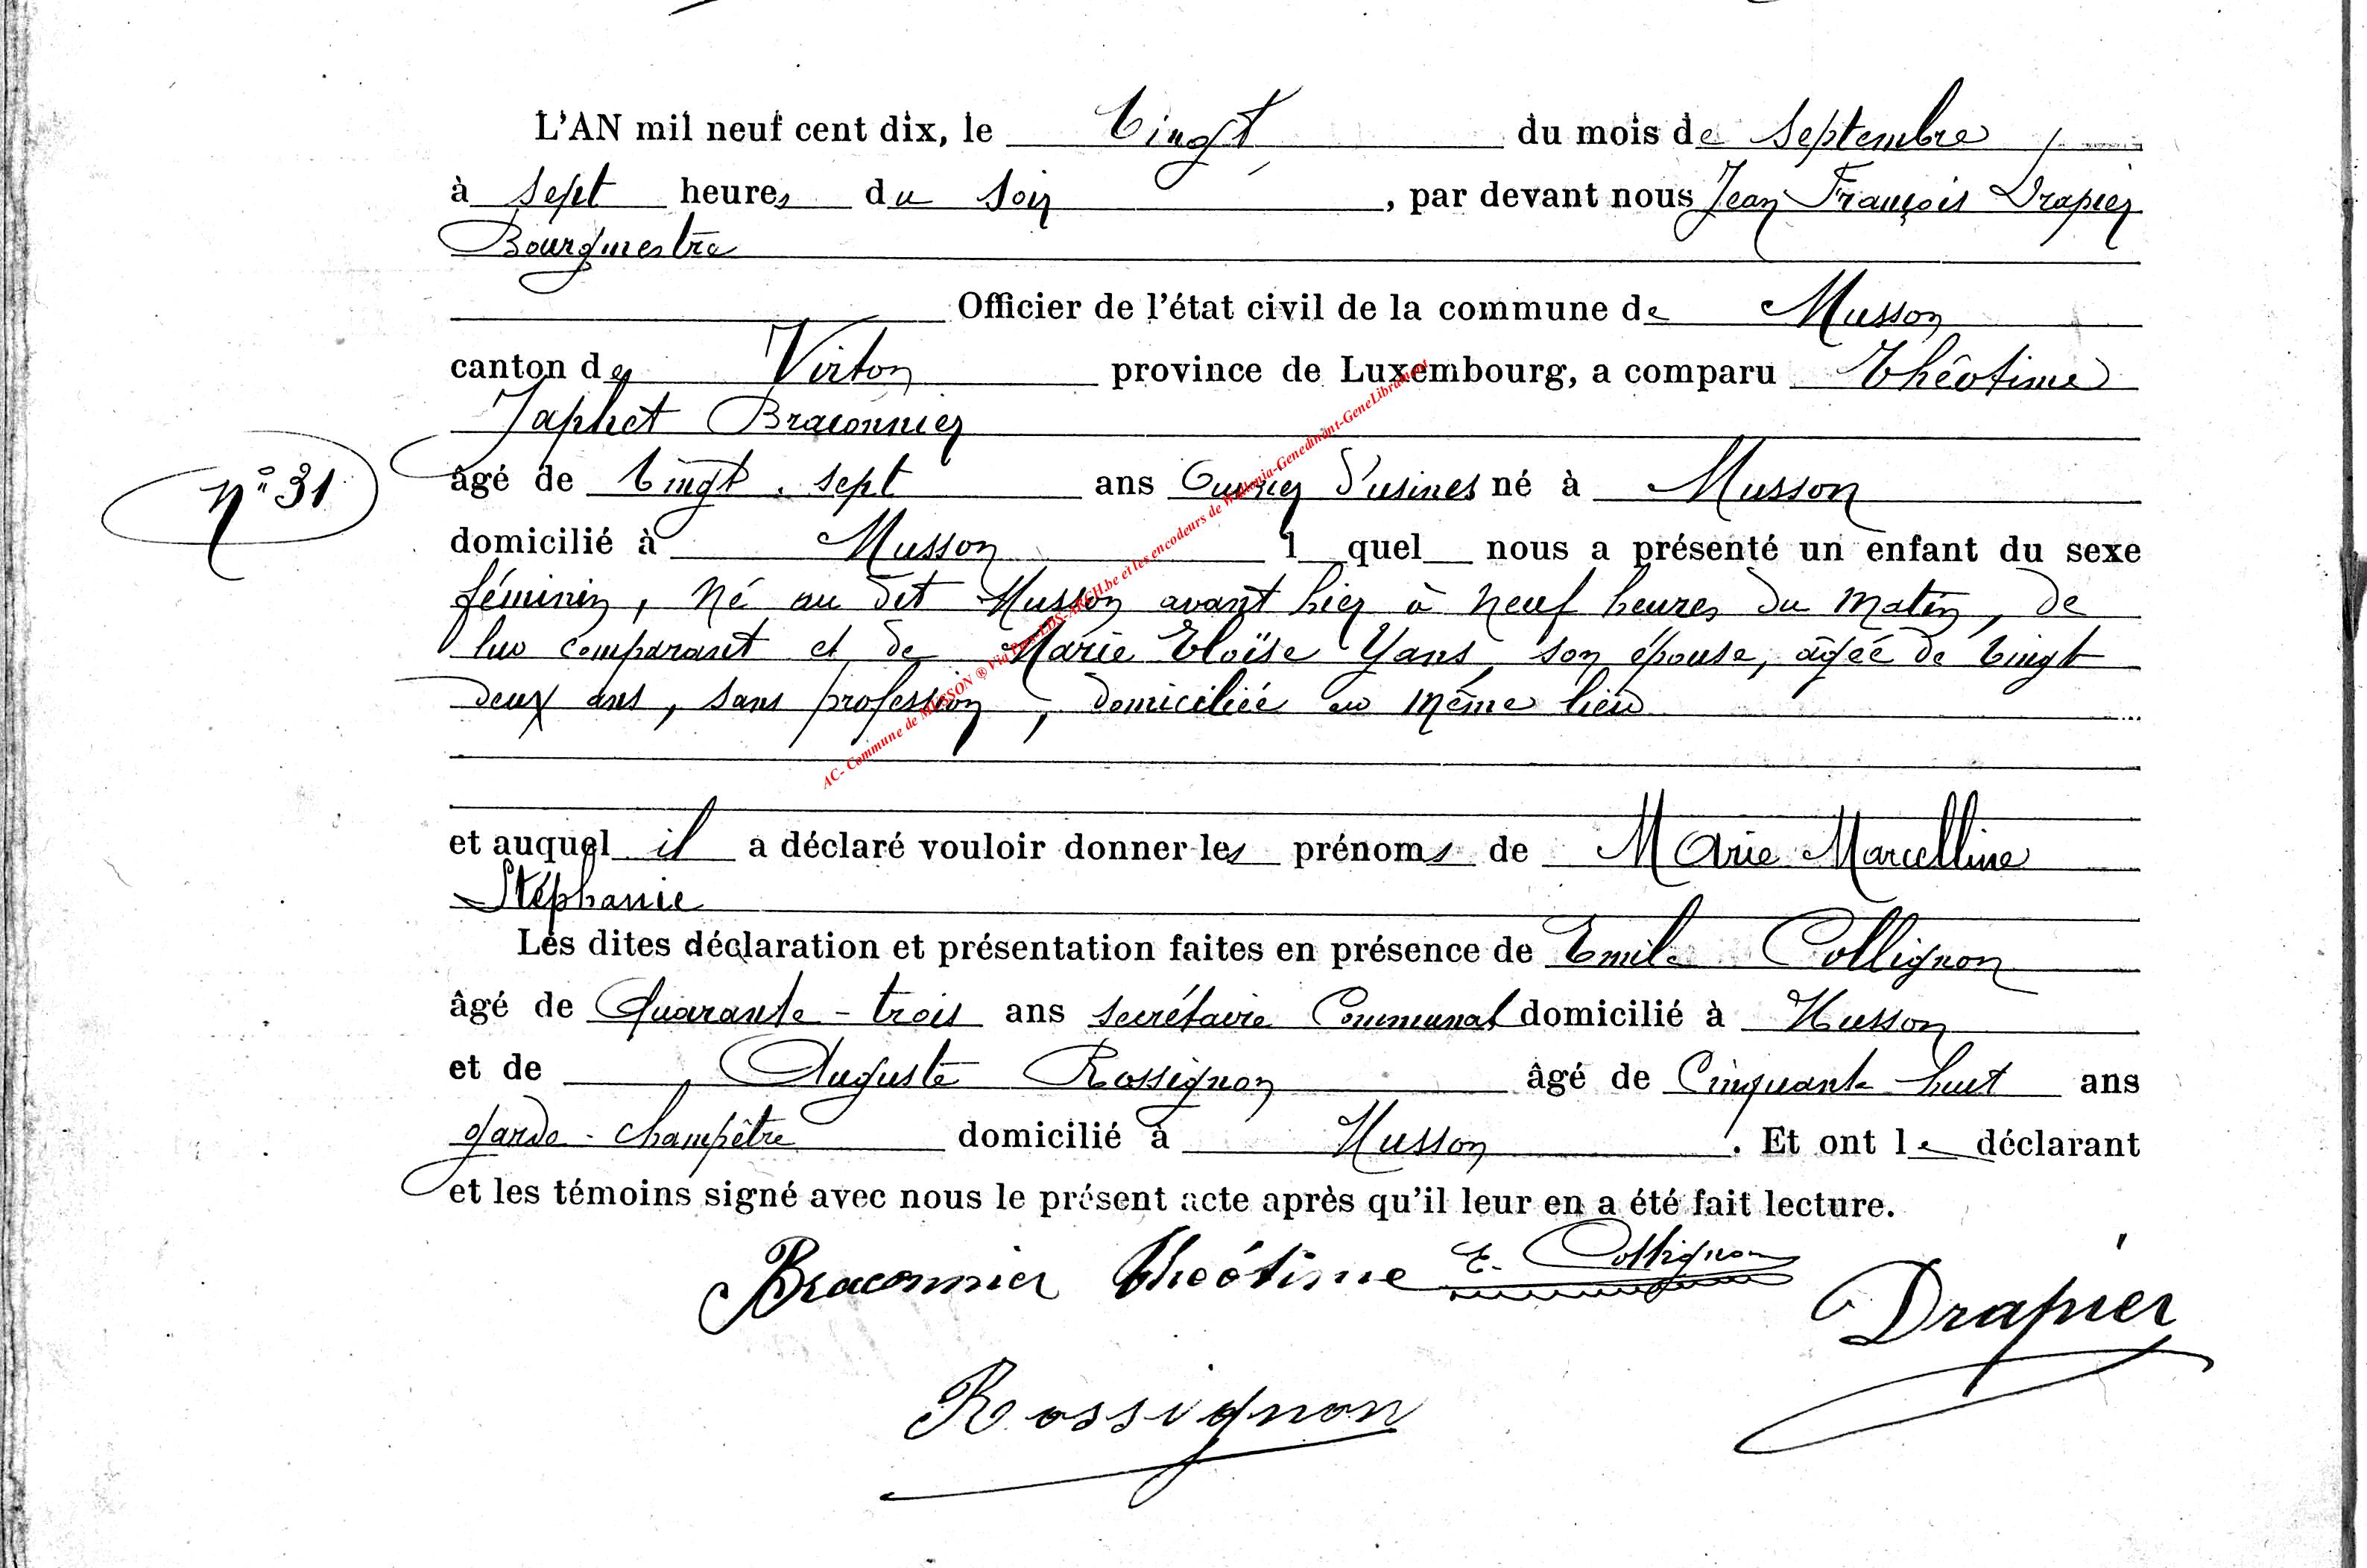 L'AN mil neuf cent dix, le Vingt du mois de Septembre,
à sept heures du soir, par devant nous Jean François Drapier
Bourgmestre
Officier de l'état civil de la commune de Musson
canton de Virton province de Luxembourg, a comparu Théotime
Japhet Braconnier
N° 31
âgé de Vingt-sept ans Ouvrier d'usines né à Musson
domicilié à Musson l quel nous a présenté un enfant du sexe
féminin, né au dit Musson avant hier à neuf heures du matin, de
lui comparant et de Marie Eloïse Yans, son épouse, âgée de vingt
deux ans, sans profession, domiciliée au même lieu
et auquel il a déclaré vouloir donner les prénoms de Marie Marcelline
Stéphanie
Les dites déclaration et présentation faites en présence de Emile Collignon
âgé de Quarante-trois ans secrétaire Communal domicilié à Musson
et de Auguste Rossignon âgé de Cinquante huit ans
garde-champêtre domicilié à Musson. Et ont le déclarant
et les témoins signé avec nous le présent acte après qu'il leur en a été fait lecture.
Braconnier Théotime E. Collignon
Drapier
Rossignon
AC- Commune de MUSSON ® Via Pass-LDS-ARCH.be et les encodeurs de Wallonia-Genedinant-GeneLibramont